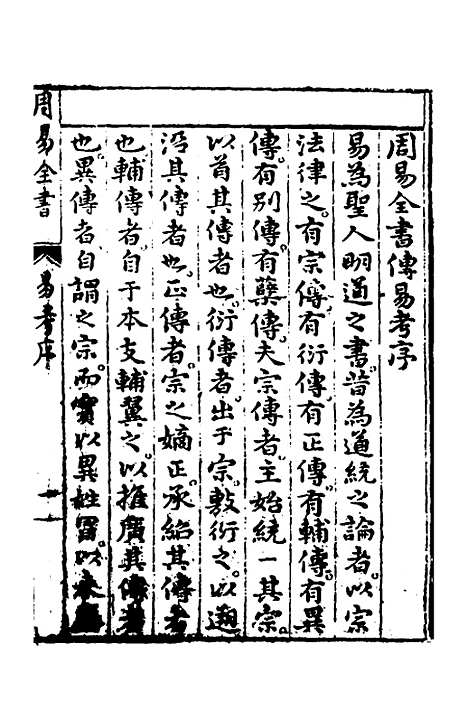 周易全書傳易考序
易為聖人明道之書昔為道統之論者以宗
法律之有宗傳有衍傳有正傳有輔傳有異
傳有別傳有孽傳夫宗傳者主始統一其宗
以首其傳者也衍傳者出于宗敷衍之以遡
沿其傳者也正傳者宗之嫡正承紹其傳者
也輔傳者自于本支輔翼之以推廣其傳者
也異傳者自謂之宗而實以異姓冒以
周易全書
易考序
十一